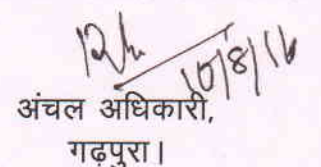 10/8/16
अंचल अधिकारी,
गढ़पुरा।